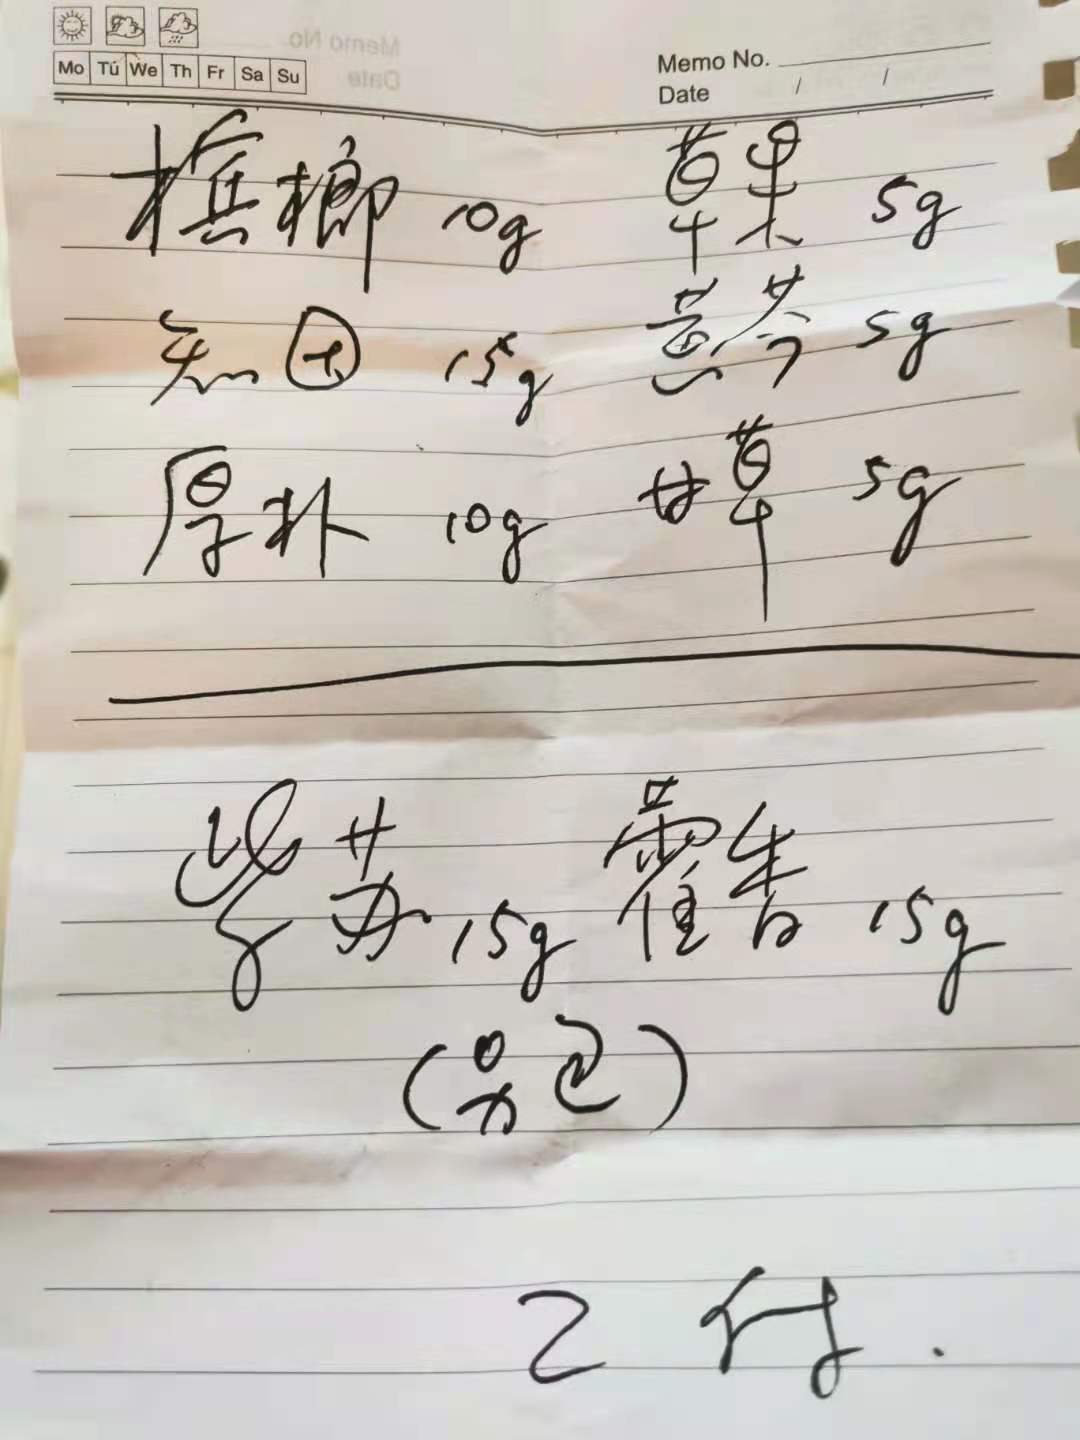 Memo No.
Date / /
Mo Tú We Th Fr Sa Su
槟榔 10g 草果 5g
知母 15g 黄芩 5g
厚朴 10g 甘草 5g
紫苏 15g 藿香 15g
(另包)
2付.